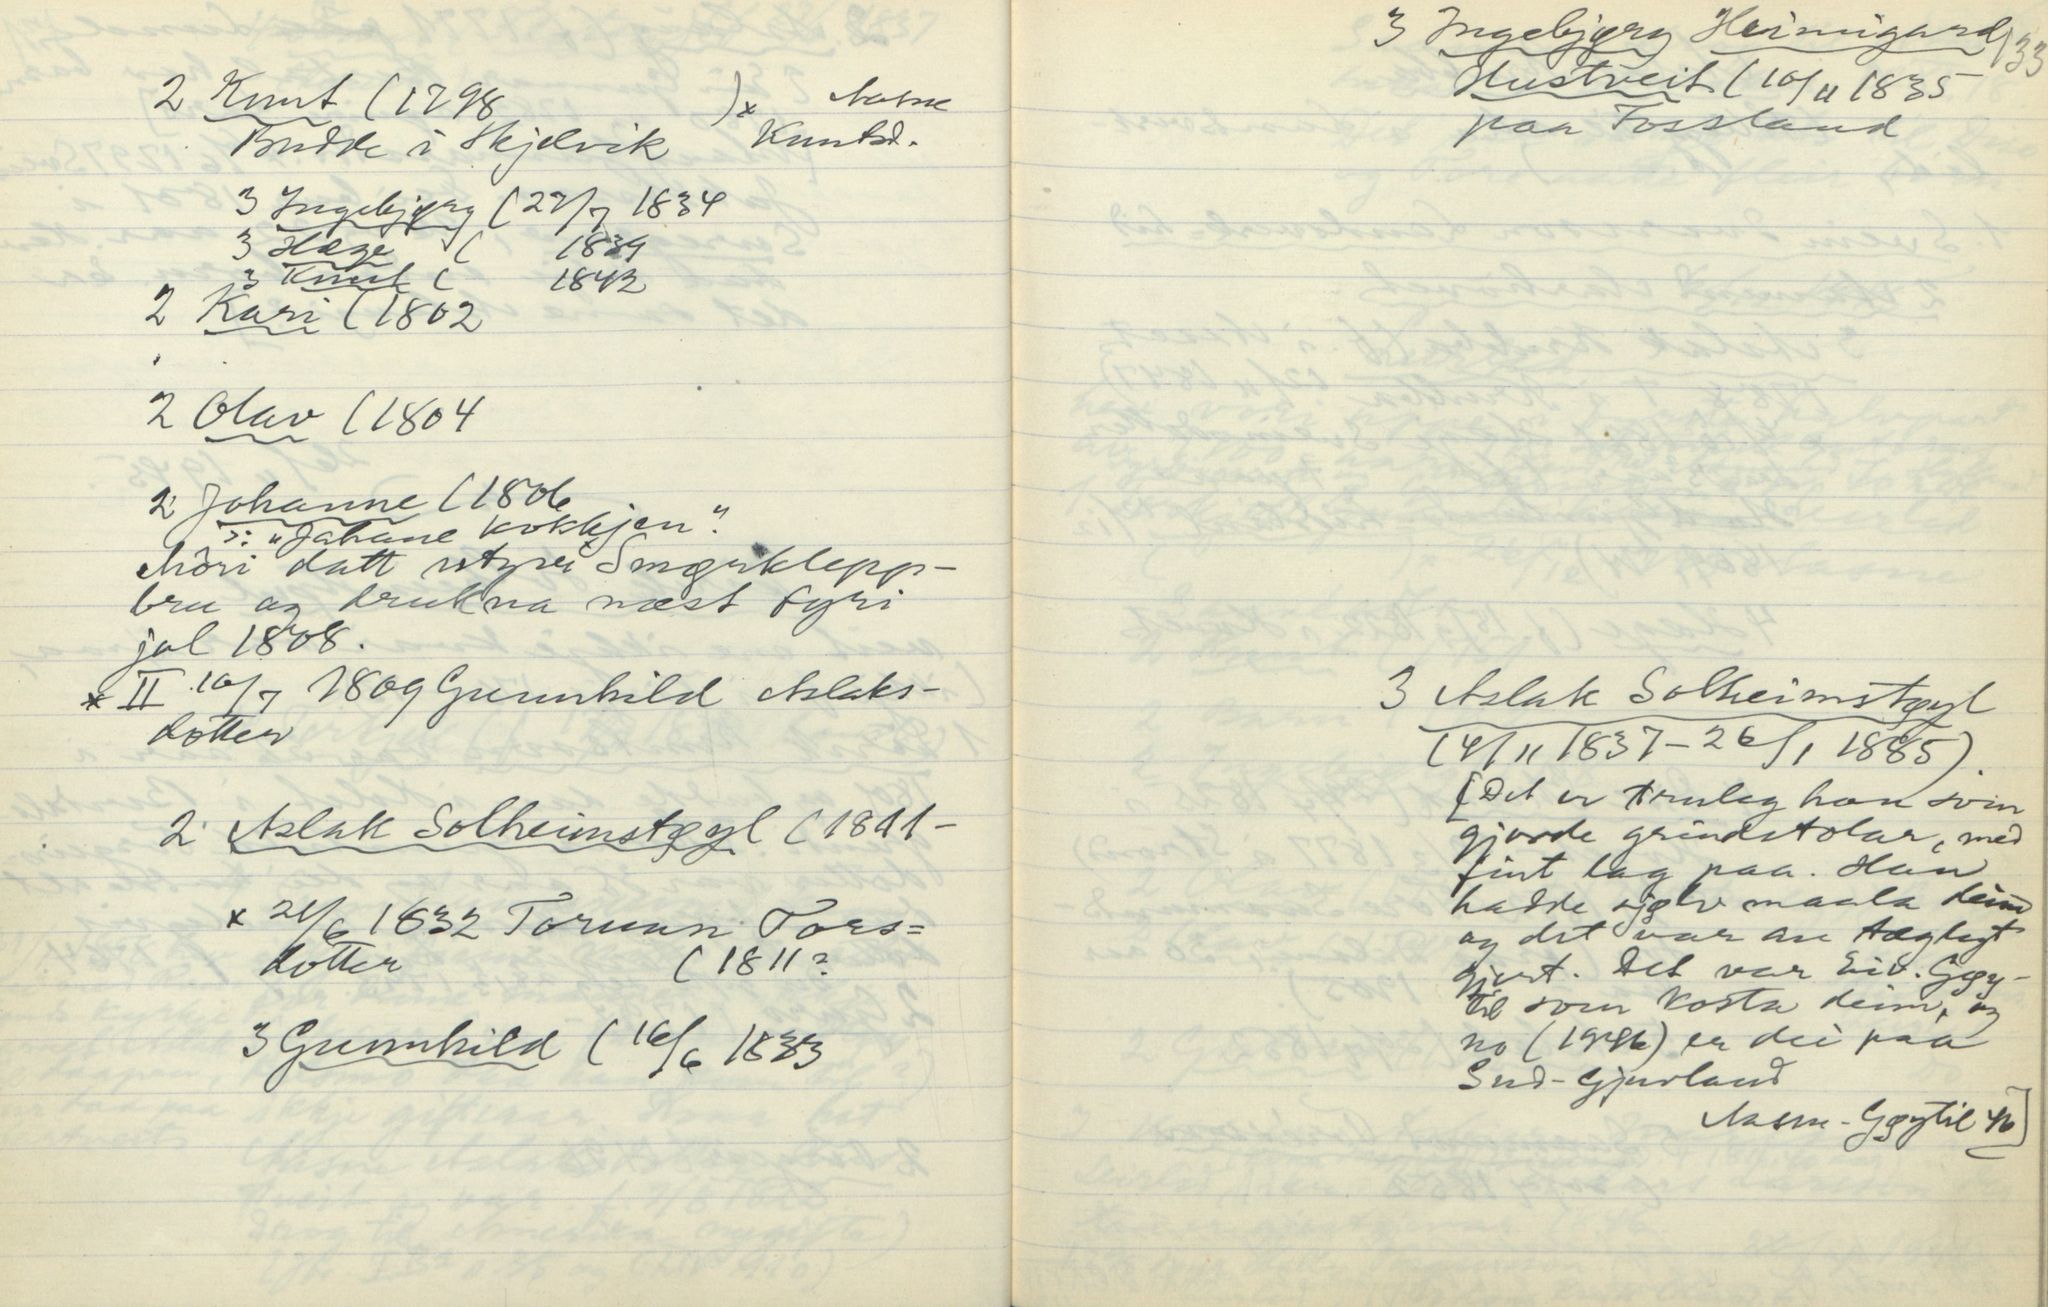 2 Knut (1798 )x Aasne
Budde i Skjelvik Knutsd.
3 Ingebjørg (27/7 1834
3 Hæge ( 1839
3 Knut ( 1842
2 Kari (1802
2 Olav (1804
2 Johanne (1806
ɔ: "Johane kokkjen".
Mori datt utyvi Smørklepp-
bru og drukna næst fyri
jol 1808.
x II 10/7 1809 Gunnhild Aslaks-
dotter
2 Aslak Solheimstøyl (1811-
x 21/6 1832 Torunn Tors=
dotter (1811?
3 Gunnhild (16/6 1833
133
3 Ingebjørg Heimigard
Hustveit (10/11 1835
paa Fossland
3 Aslak Solheimstøyl
(4/11 1837 – 26/1 1885).
[Det er truleg han som
gjorde grindstolar, med
fint lag paa. Han
hadde sjølv maala deim
og det var au tægleg
gjort. Det var Eiv. Gøy-
til som kosta deim, og
no (1946) er dei paa
Sud-Gjuvland
Aasne Gøytil 46]